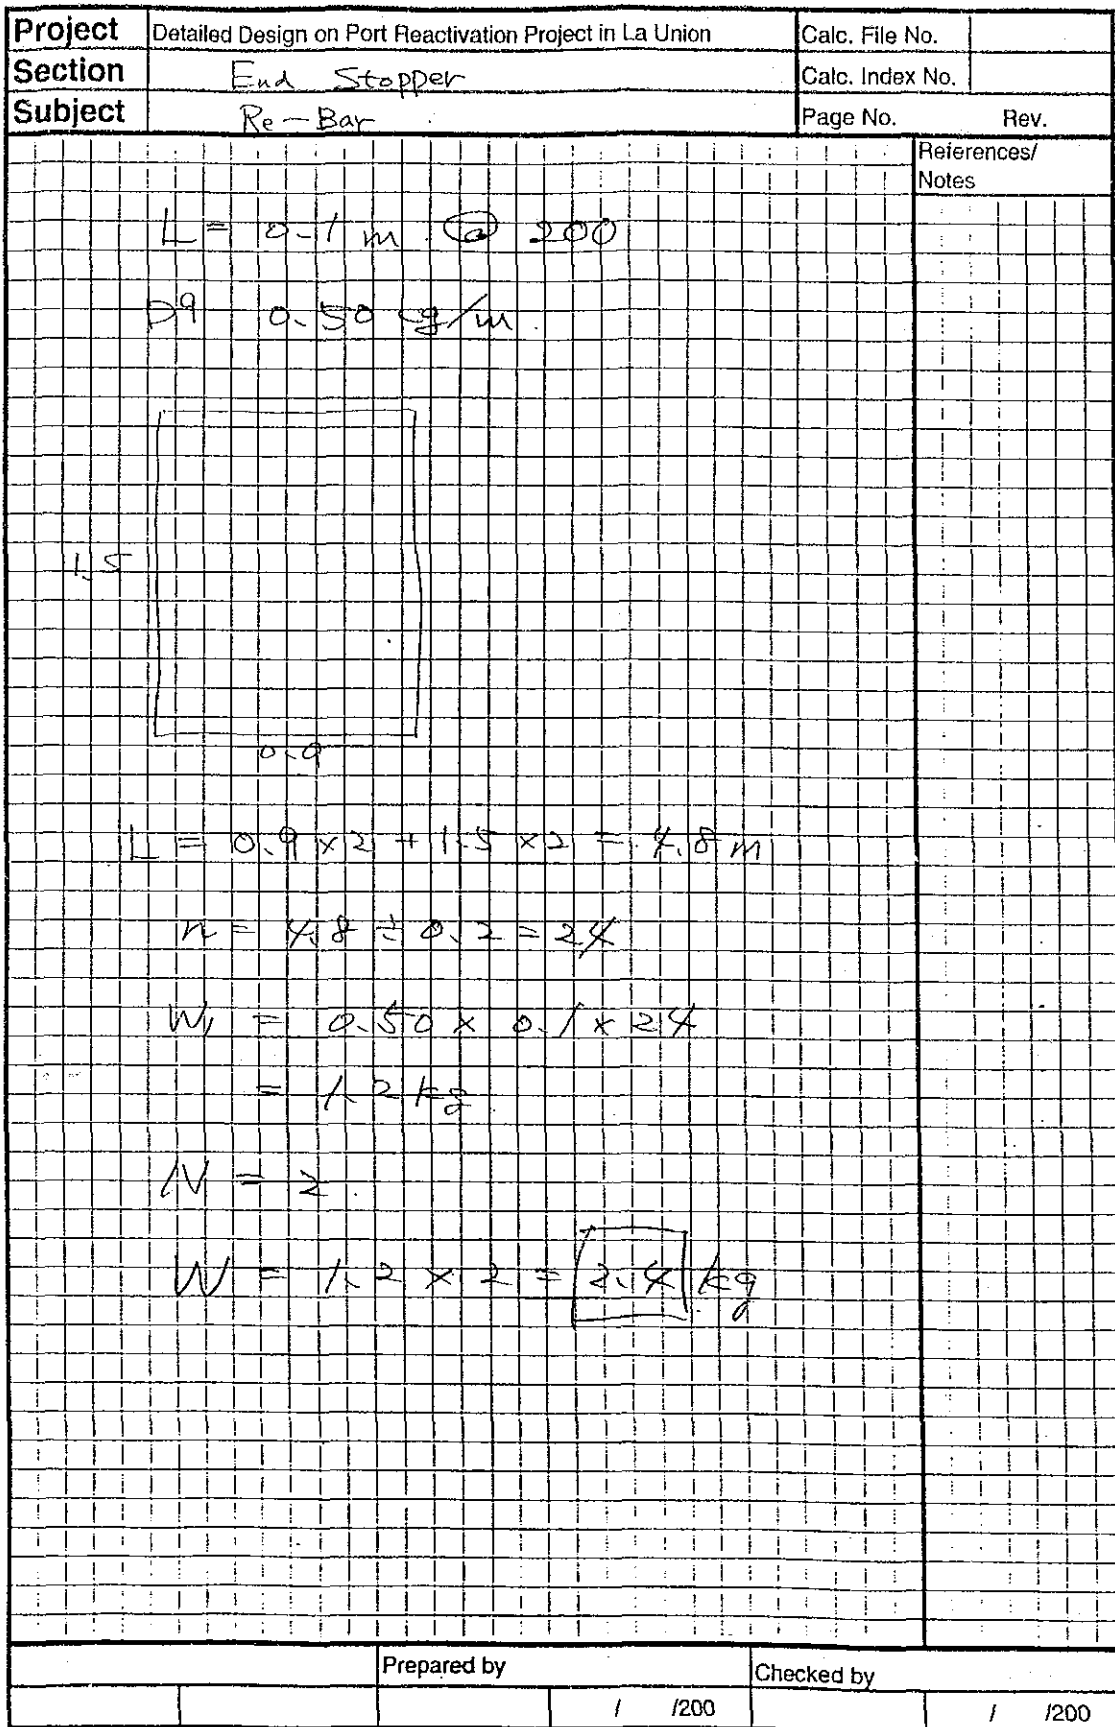 Project Detailed Design on Port Reactivation Project in La Union Calc. File No.
Section End Stopper Calc. Index No.
Subject Re-Bar Page No. Rev.
References/
Notes
L = 0.1 m @ 200
D9 0.50 kg/m
1.5
0.9
L = 0.9 × 2 + 1.5 × 2 = 4.8 m
n = 4.8 ÷ 0.2 = 24
W1 = 0.50 × 0.1 × 24
= 1.2 kg
N = 2
W = 1.2 × 2 = 2.4 kg
Prepared by Checked by
/ /200 / /200